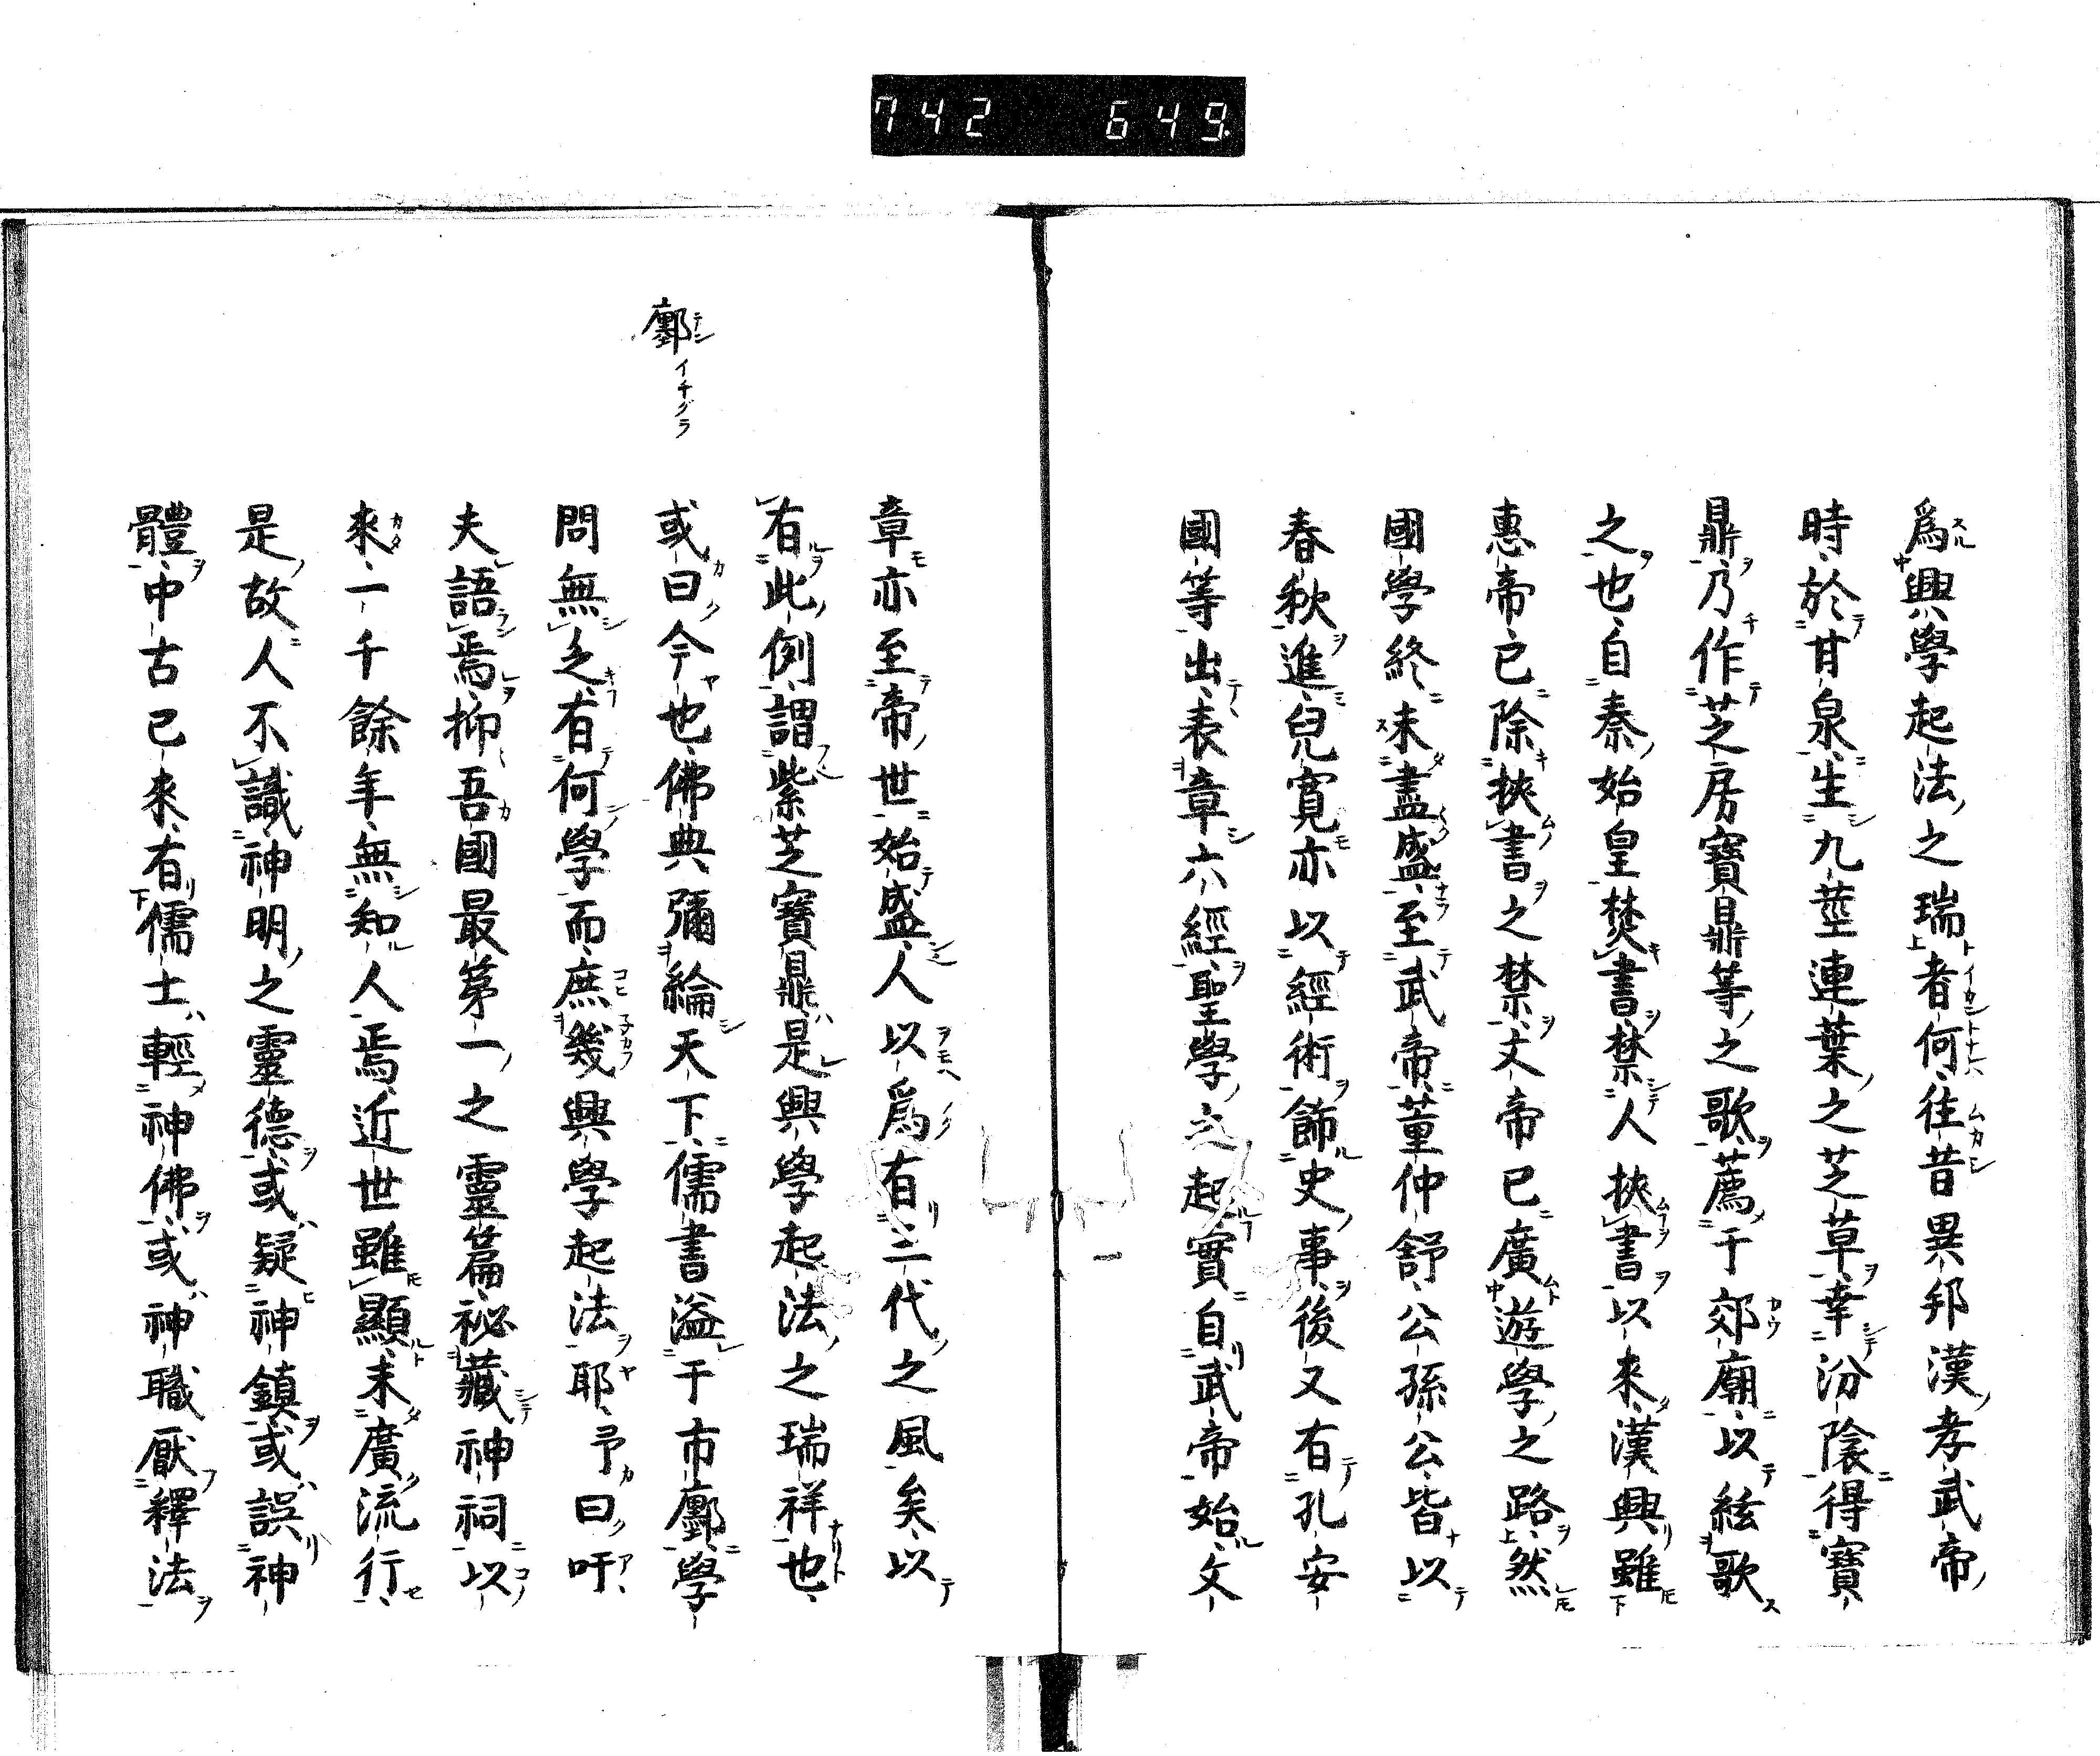 742 649
爲興學起法之瑞者何往昔異邦漢孝武帝
時於甘泉生九莖連葉之芝草幸汾陰得寶
鼎乃作芝房寶鼎等之歌薦于郊廟以絃歌
之也自秦始皇焚書禁人挾書以來漢興雖
惠帝已除挾書之禁文帝已廣遊學之路然
國學終未盡盛至武帝董仲舒公孫公皆以
春秋進兒寛亦以經術飾史事後又有孔安
國等出表章六經聖學之起實自武帝始文
章亦至帝世始盛人以爲有三代之風矣以
有此例謂紫芝寶鼎是興學起法之瑞祥也
或曰今也佛典彌綸天下儒書溢于市鄽學
問無乏有何學而庶幾興學起法耶予曰吁
夫語焉抑吾國最第一之靈篇祕藏神祠以
來一千餘年無知人焉近世雖顯未廣流行
是故人不識神明之靈德或疑神鎮或誤神
體中古已來有儒士輕神佛或神職厭釋法
鄽テン イチグラ